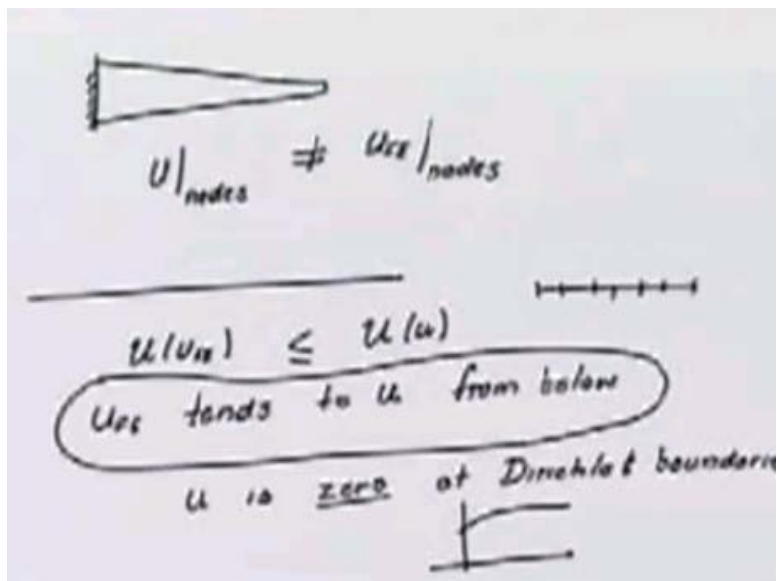 U|nodes ≠ UFE|nodes
U(UFE) ≤ U(u)
UFE tends to u from below
u is zero at Dirichlet boundarie